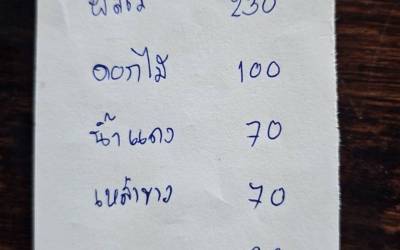 ผลไม้ 230
ดอกไม้ 100
น้ำแดง 70
เหล้าขาว 70